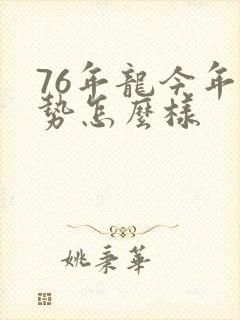 76年龍今年
勢怎麼樣
姚秉華